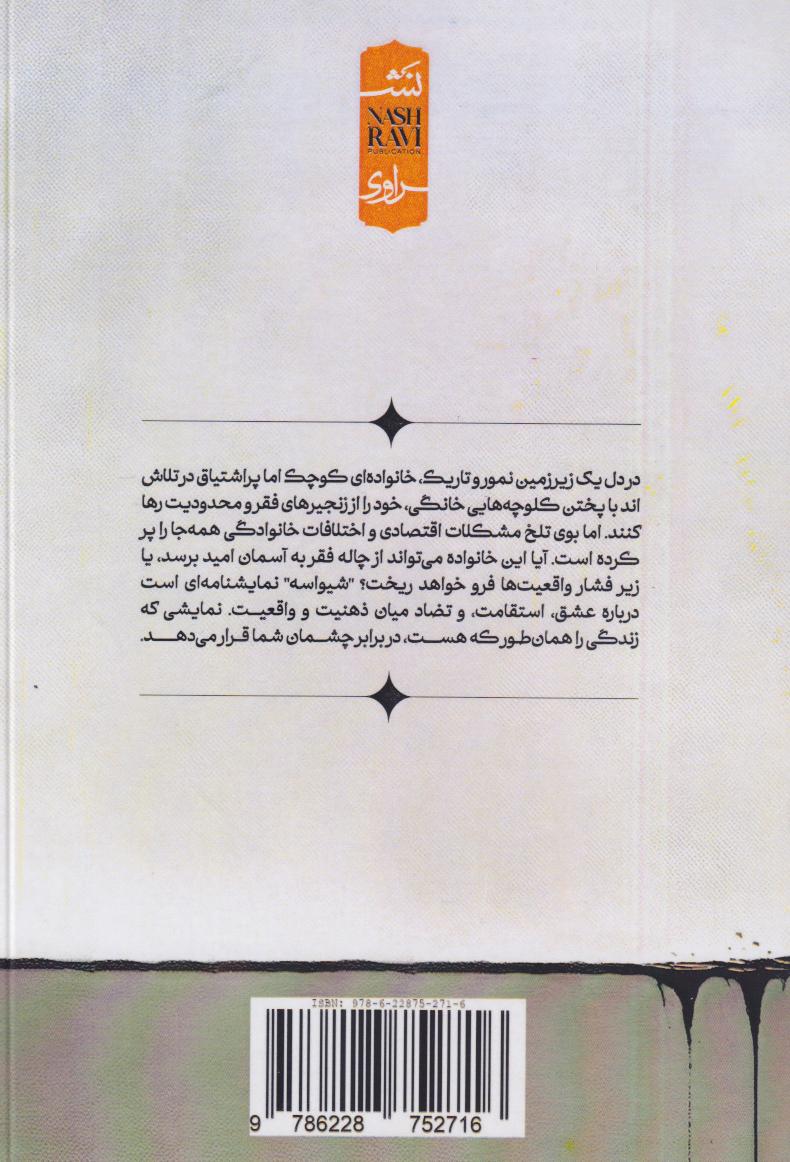 نشر
NASH
RAVI
PUBLICATION
راوی
در دل یک زیرزمین نمور و تاریک، خانواده‌ای کوچک اما پراشتیاق در تلاش
اند با پختن کلوچه‌هایی خانگی، خود را از زنجیرهای فقر و محدودیت رها
کنند. اما بوی تلخ مشکلات اقتصادی و اختلافات خانوادگی همه‌جا را پر
کرده است. آیا این خانواده می‌تواند از چاله فقر به آسمان امید برسد، یا
زیر فشار واقعیت‌ها فرو خواهد ریخت؟ "شیواسه" نمایشنامه‌ای است
درباره عشق، استقامت، و تضاد میان ذهنیت و واقعیت. نمایشی که
زندگی را همان‌طور که هست، در برابر چشمان شما قرار می‌دهد.
ISBN: 978-6-22875-271-6
9 786228 752716